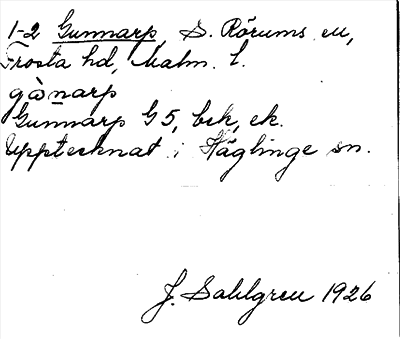 1-2 Gunnarp, S. Rörums sn,
Frosta hd, Malm. l.
gònarp
Gunnarp G5, brk, ek.
Upptecknat i Häglinge sn.
J. Sahlgren 1926